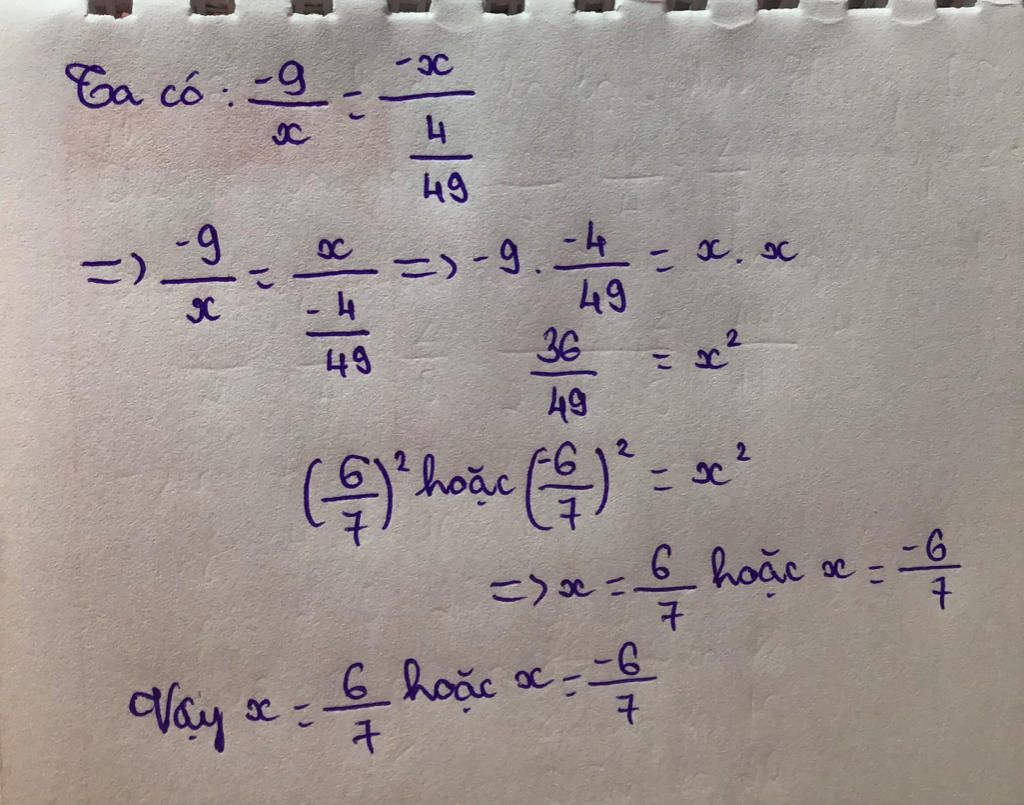 Ta có: -9/x = -x/(4/49)
=> -9/x = x/(-4/49) => -9 . -4/49 = x . x
36/49 = x²
(6/7)² hoặc (-6/7)² = x²
=> x = 6/7 hoặc x = -6/7
Vậy x = 6/7 hoặc x = -6/7